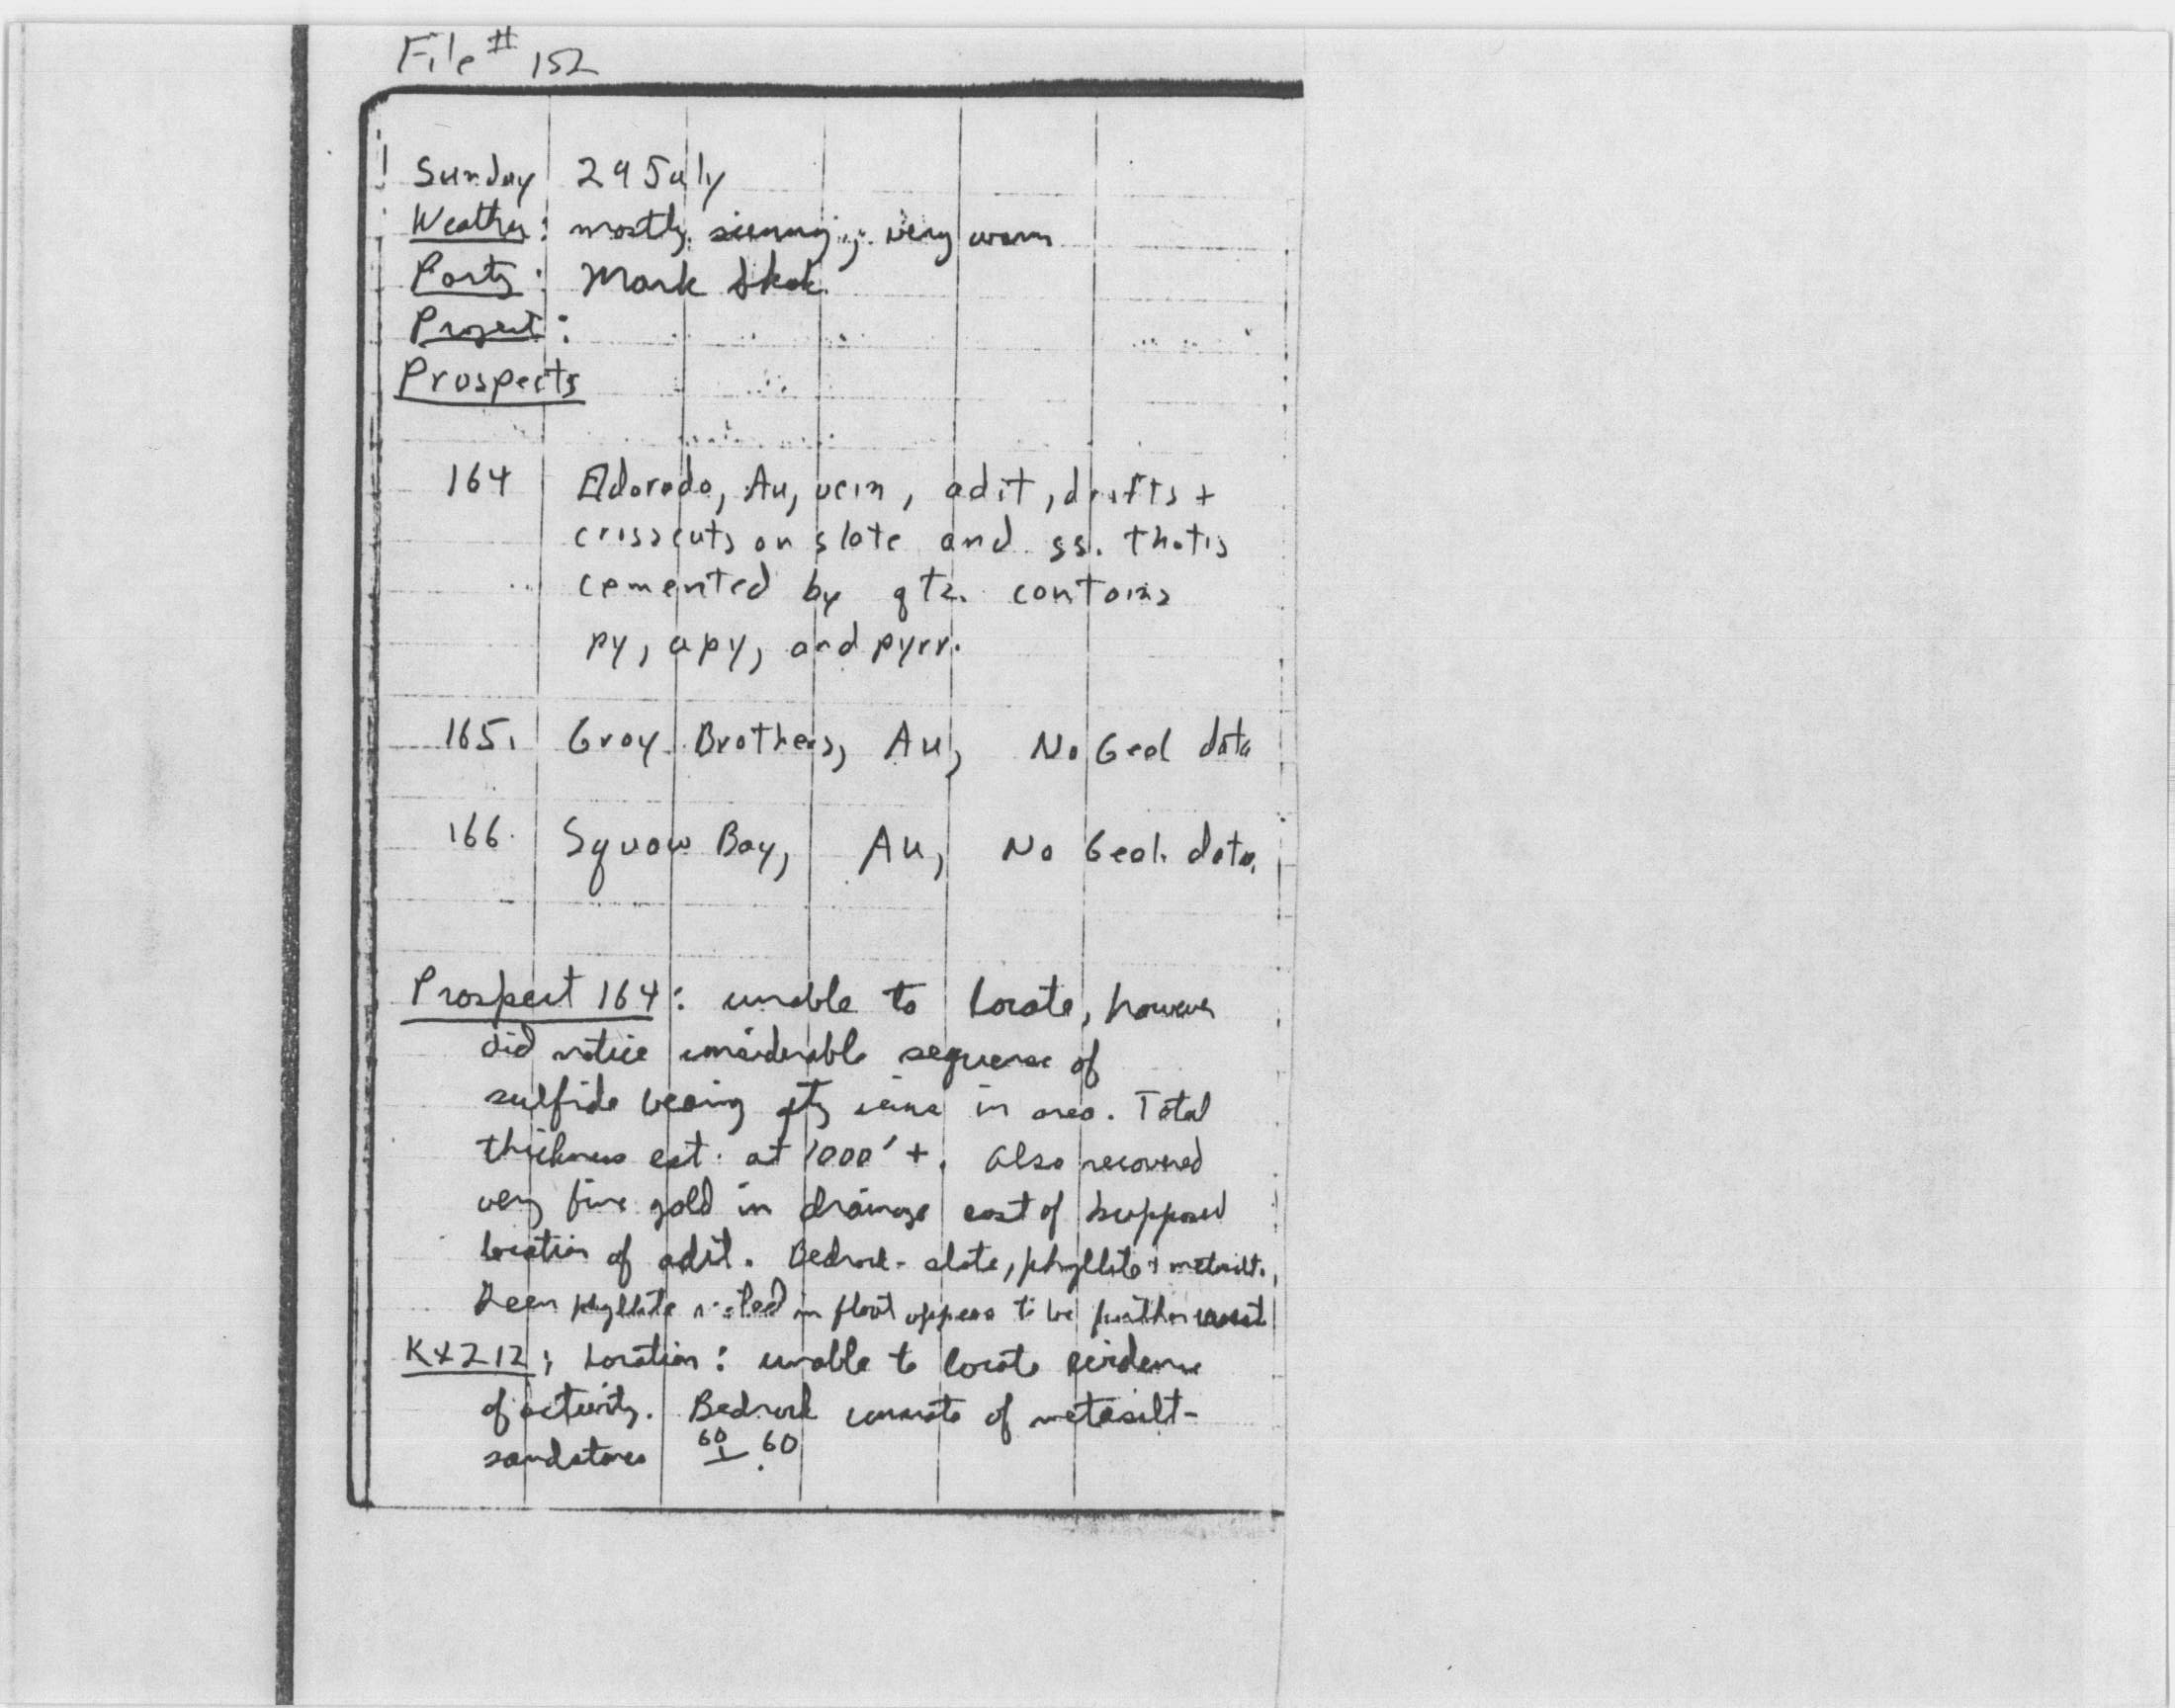 File # 152
Sunday 29 July
Weather: mostly sunny; very warm
Party: Mark
Project:
Prospects
164 Eldorado, Au, vein, adit, drifts +
crosscuts on slate and ss. that is
cemented by qtz. contains
py, apy, and pyrr.
165. Gray Brothers, Au, No Geol data
166. Squaw Bay, Au, No Geol. data.
Prospect 164: unable to locate, however
did notice considerable sequence of
sulfide bearing qtz veins in area. Total
thickness est. at 1000' +. Also recovered
very fine gold in drainage east of supposed
location of adit. Bedrock - slate, phyllite + metasilt.
phyllite noted in float appears to be further
KX212; Location: unable to locate evidence
of activity. Bedrock consists of metasilt-
sandstones 60 60